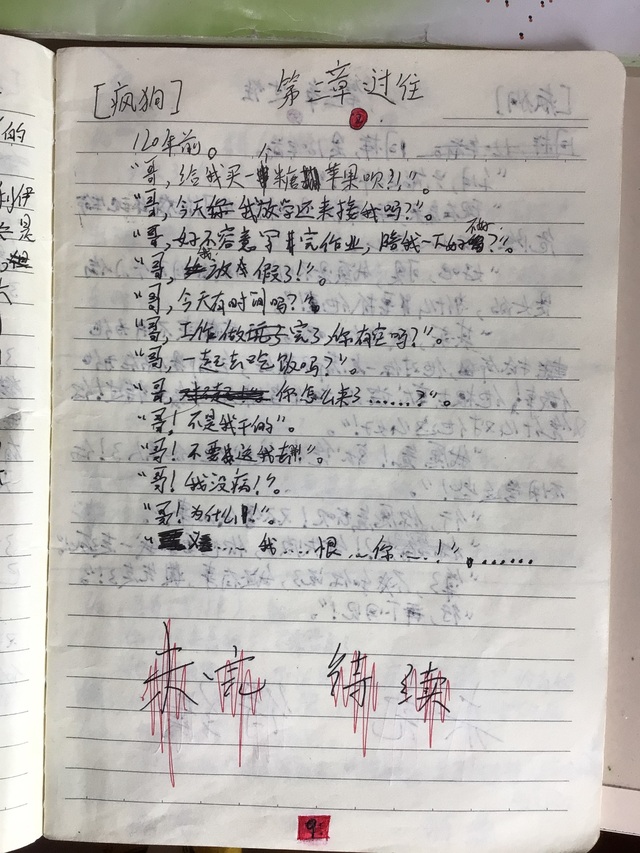 [疯狗] 第三章 过往
120年前。
"哥,给我买一个糖苹果呗!!"。
"哥,今天我放学还来接我吗?"。
"哥,好不容意写完作业,陪我一下好不好?"。
"哥,我放假了!"。
"哥,今天有时间吗?"。
"哥,工作做完了你有空吗?"。
"哥,一起去吃饭吗?"。
"哥,你怎么来了……?"。
"哥!不是我干的"。
"哥!不要送我去!!!"。
"哥!我没病!"。
"哥!为什么!!"。
"……我……恨…你…!"。……
未完 待续
9
的
利伊
是